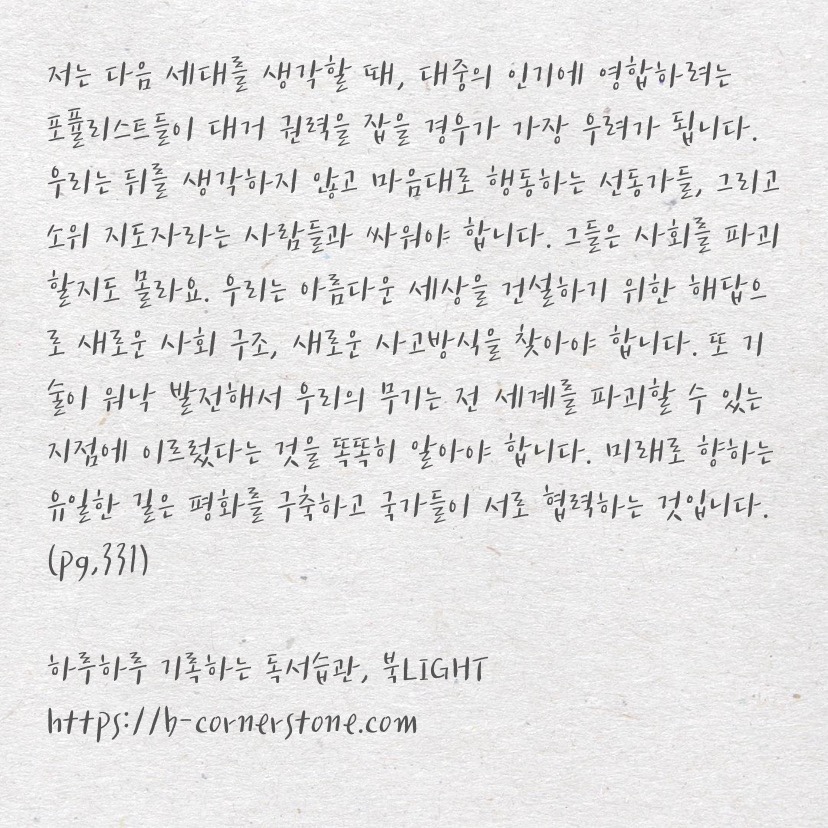 저는 다음 세대를 생각할 때, 대중의 인기에 영합하려는
포퓰리스트들이 대거 권력을 잡을 경우가 가장 우려가 됩니다.
우리는 뒤를 생각하지 않고 마음대로 행동하는 선동가들, 그리고
소위 지도자라는 사람들과 싸워야 합니다. 그들은 사회를 파괴
할지도 몰라요. 우리는 아름다운 세상을 건설하기 위한 해답으
로 새로운 사회 구조, 새로운 사고방식을 찾아야 합니다. 또 기
술이 워낙 발전해서 우리의 무기는 전 세계를 파괴할 수 있는
지점에 이르렀다는 것을 똑똑히 알아야 합니다. 미래로 향하는
유일한 길은 평화를 구축하고 국가들이 서로 협력하는 것입니다.
(pg.331)
하루하루 기록하는 독서습관, 북LIGHT
https://b-cornerstone.com